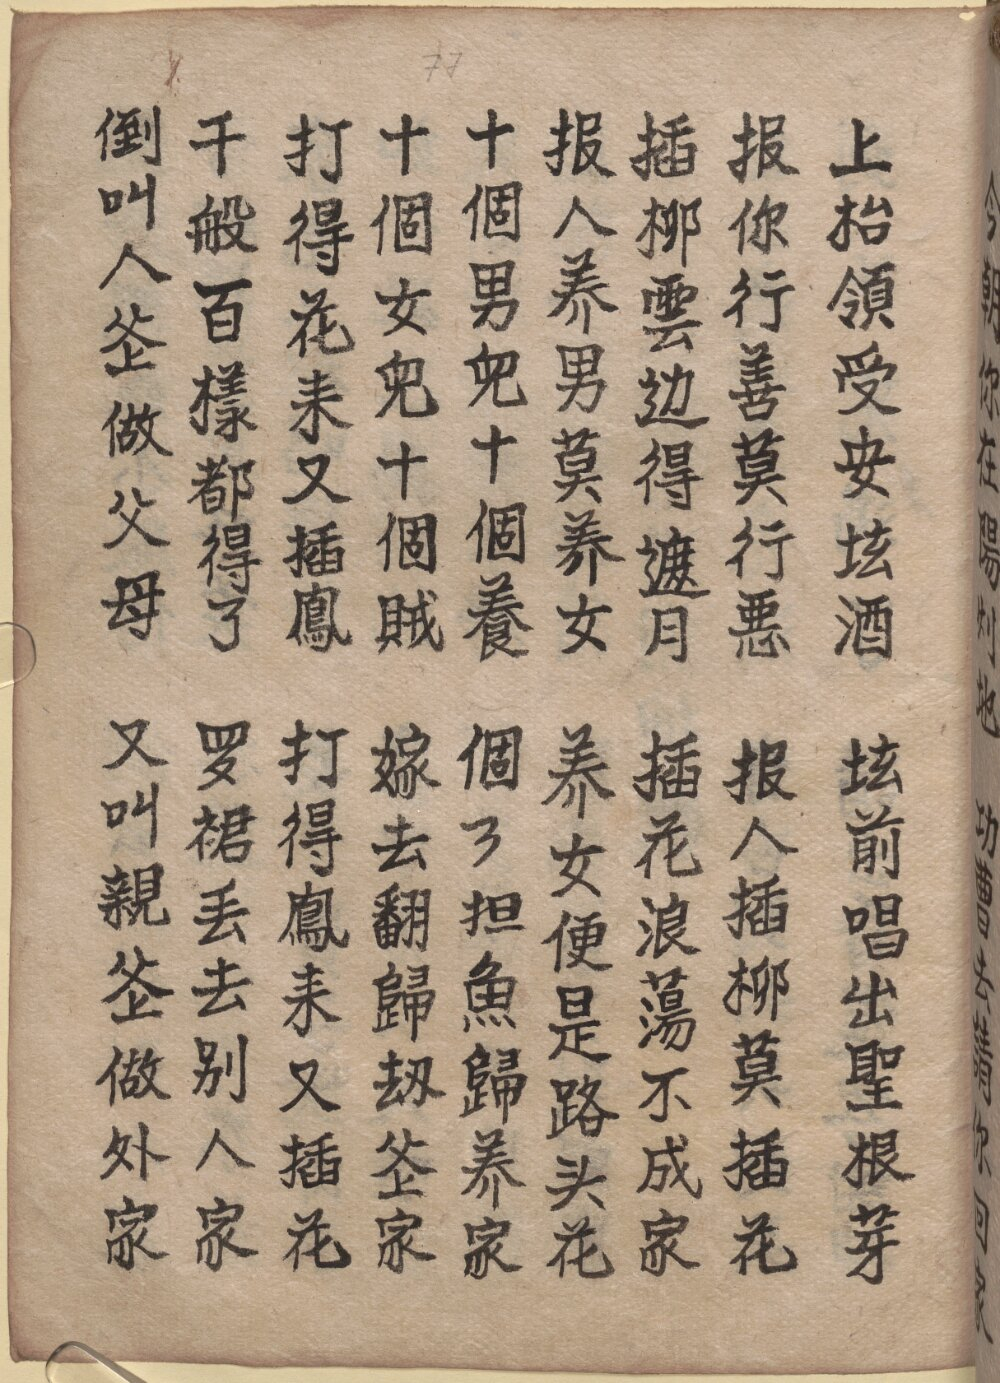 上枱領受安坛酒 坛前唱出聖根芽
报你行善莫行悪 报人插柳莫插花
插柳雲边得遮月 插花浪蕩不成家
报人养男莫养女 养女便是路头花
十個男兒十個養 個了担魚歸养家
十個女兒十個賊 嫁去翻歸刼爷家
打得花来又插鳳 打得鳳来又插花
千般百樣都得了 罗裙丢去别人家
倒叫人爷做父母 又叫親爷做外家
77